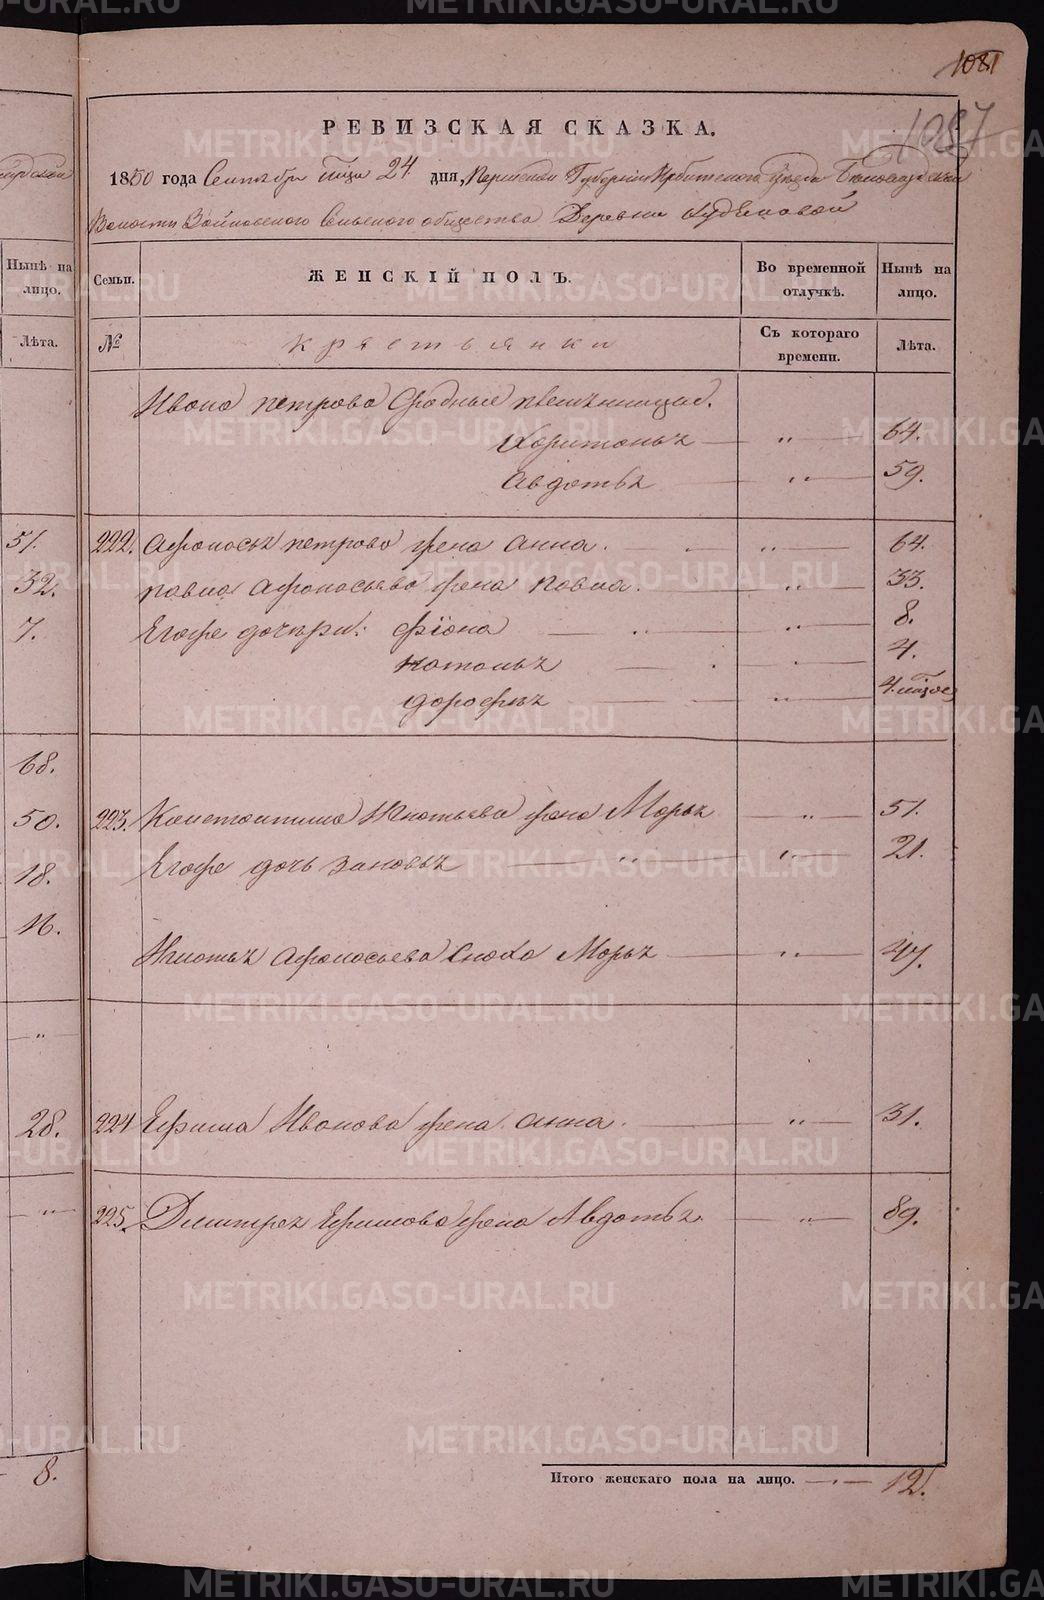 1081
1087
РЕВИЗСКАЯ СКАЗКА.
1850 года Сентября месяца 24 дня, Пермской Губернии Ирбитского уезда Белослудской
Волости Зайковского Сельского общества Деревни Кудёловой
Нынѣ на лицо.
Семьи.
ЖЕНСКІЙ ПОЛЪ.
Во временной отлучкѣ.
Нынѣ на лицо.
Лѣта.
№
крестьянки
Съ котораго времени.
Лѣта.
Ивана петрова Сродные племянницы.
Харитонья „ 64.
Авдотья „ 59.
51. 222. Афонасья петрова жена анна. „ 64.
32. павла Афонасьева жена павла. „ 33.
7. Егоже дочери: Фіона „ 8.
наталья „ 4.
дорофея „ 4. месяц
68.
50. 223. Константина Игнатьева жена Марья „ 51.
18. Егоже дочь зиновья „ 21.
16.
Игнатья Афонасьева Сноха Марья „ 47.
„
28. 224 Ефима Иванова жена анна. „ 31.
„ 225. Дмитрея Ефимова жена Авдотья. „ 89.
8.
Итого женскаго пола на лицо. 12.
METRIKI.GASO-URAL.RU